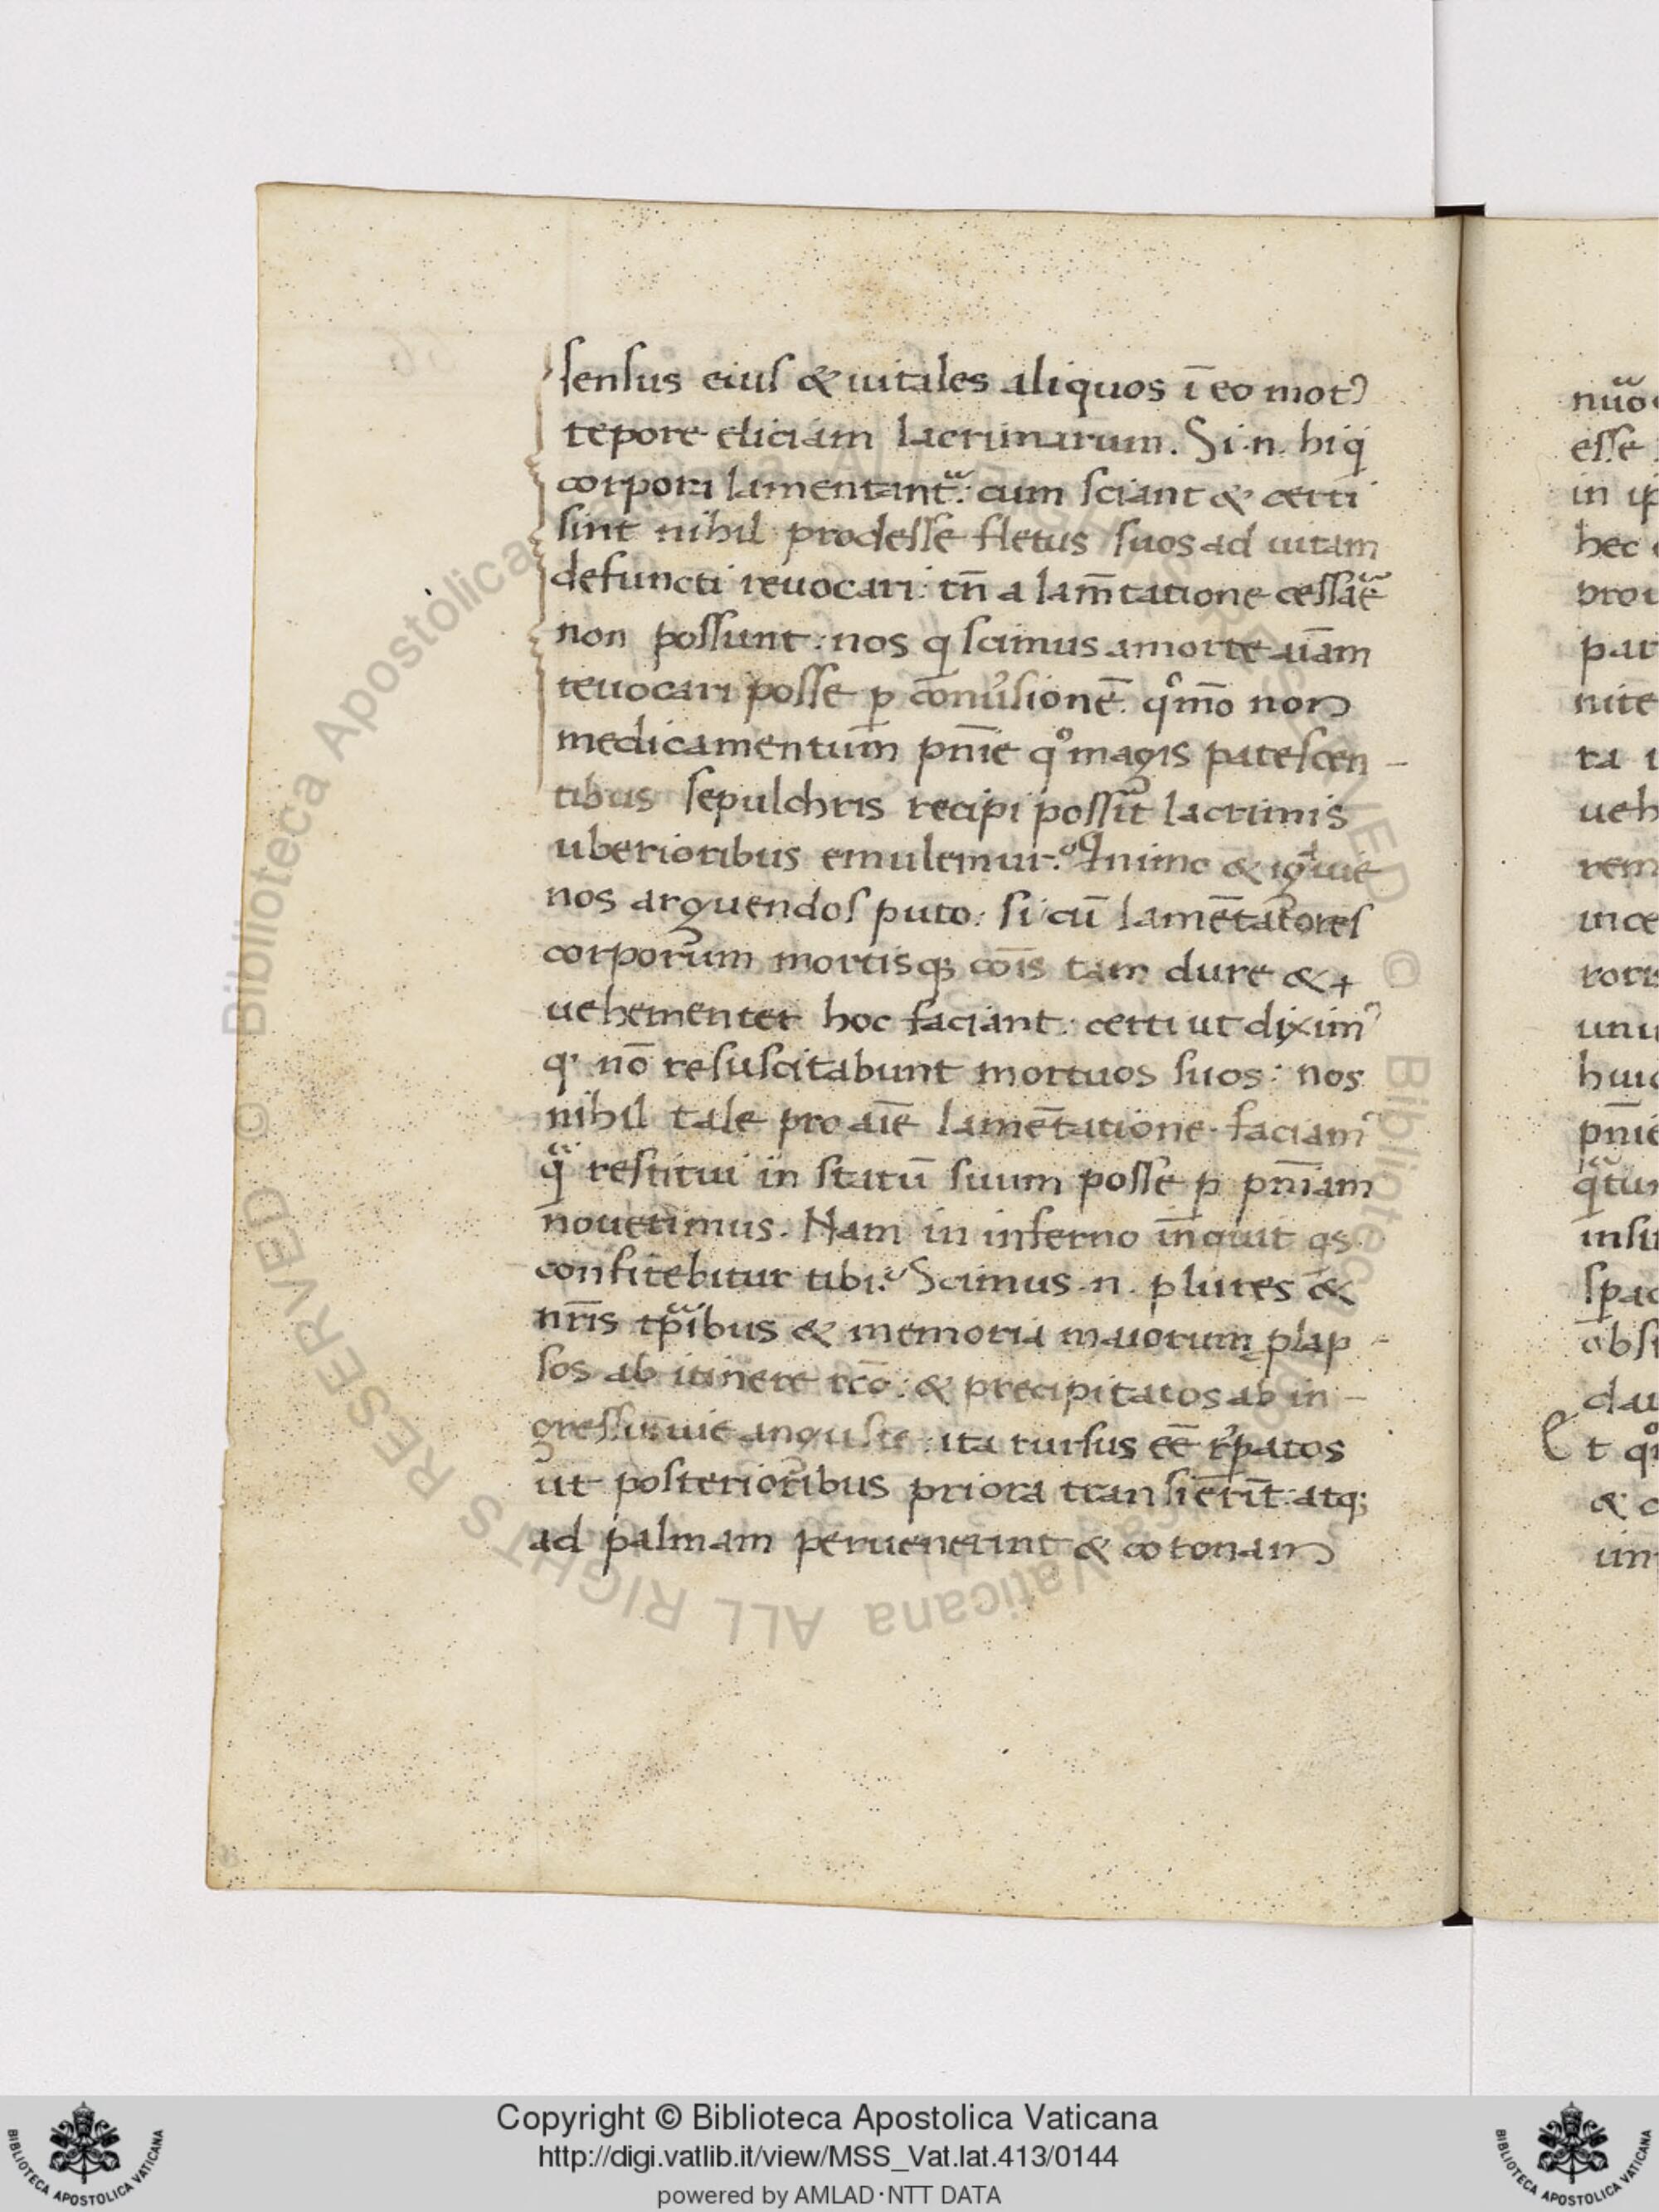 sensus eius & uitales aliquos ī eo mot᾽
tepore eliciam lacrimarum. Si .n. hi q̇
corpora lamentant᷑: cum sciant & certi
sint nihil prodesse fletus suos ad uitam
defuncti reuocari: tn̄ a lam̄tatione cessar̄e
non possunt: nos q scimus a morte aīam
reuocari posse ꝑ conu̓sionē. qͦmō non
medicamentum pn̄ie qͦ magis patescen-
tibus sepulchris recipi possit lacrimis
uberioribus emulemur. Quinimo & ig̑uie
nos arguendos puto: si cū lamētatores
corporum mortisq; cōīs tam dure &
uehementer hoc faciant: certi ut diximꝰ
q nō resuscitabunt mortuos suos: nos
nihil tale pro aīe lamētatione faciamꝰ
qͣ restitui in statū suum posse ꝑ pn̄iam
nouerimus. Nam in inferno inquit qs
confitebitur tibi: Scimus .n. plures &
nr̄is tp̄ibus & memoria maiorum ꝑlap-
sos ab itinere rc̄o: & precipitatos ab in-
gressu uie anguste: ita rursus eē r̓patos
ut posterioribus priora transierīt: atq;
ad palmam peruenerint & coronam
nūo
esse
in ip
hec
pro
par
nite
ra
ueh
rem
ince
rorr
unu
huic
pn̄ie
qͣtu
insu
spac
obsi
dau
Et qͦ
& c
Copyright © Biblioteca Apostolica Vaticana
http://digi.vatlib.it/view/MSS_Vat.lat.413/0144
powered by AMLAD·NTT DATA
BIBLIOTECA APOSTOLICA VATICANA
BIBLIOTECA APOSTOLICA VATICANA
© Biblioteca Apostolica Vaticana ALL RIGHTS RESERVED